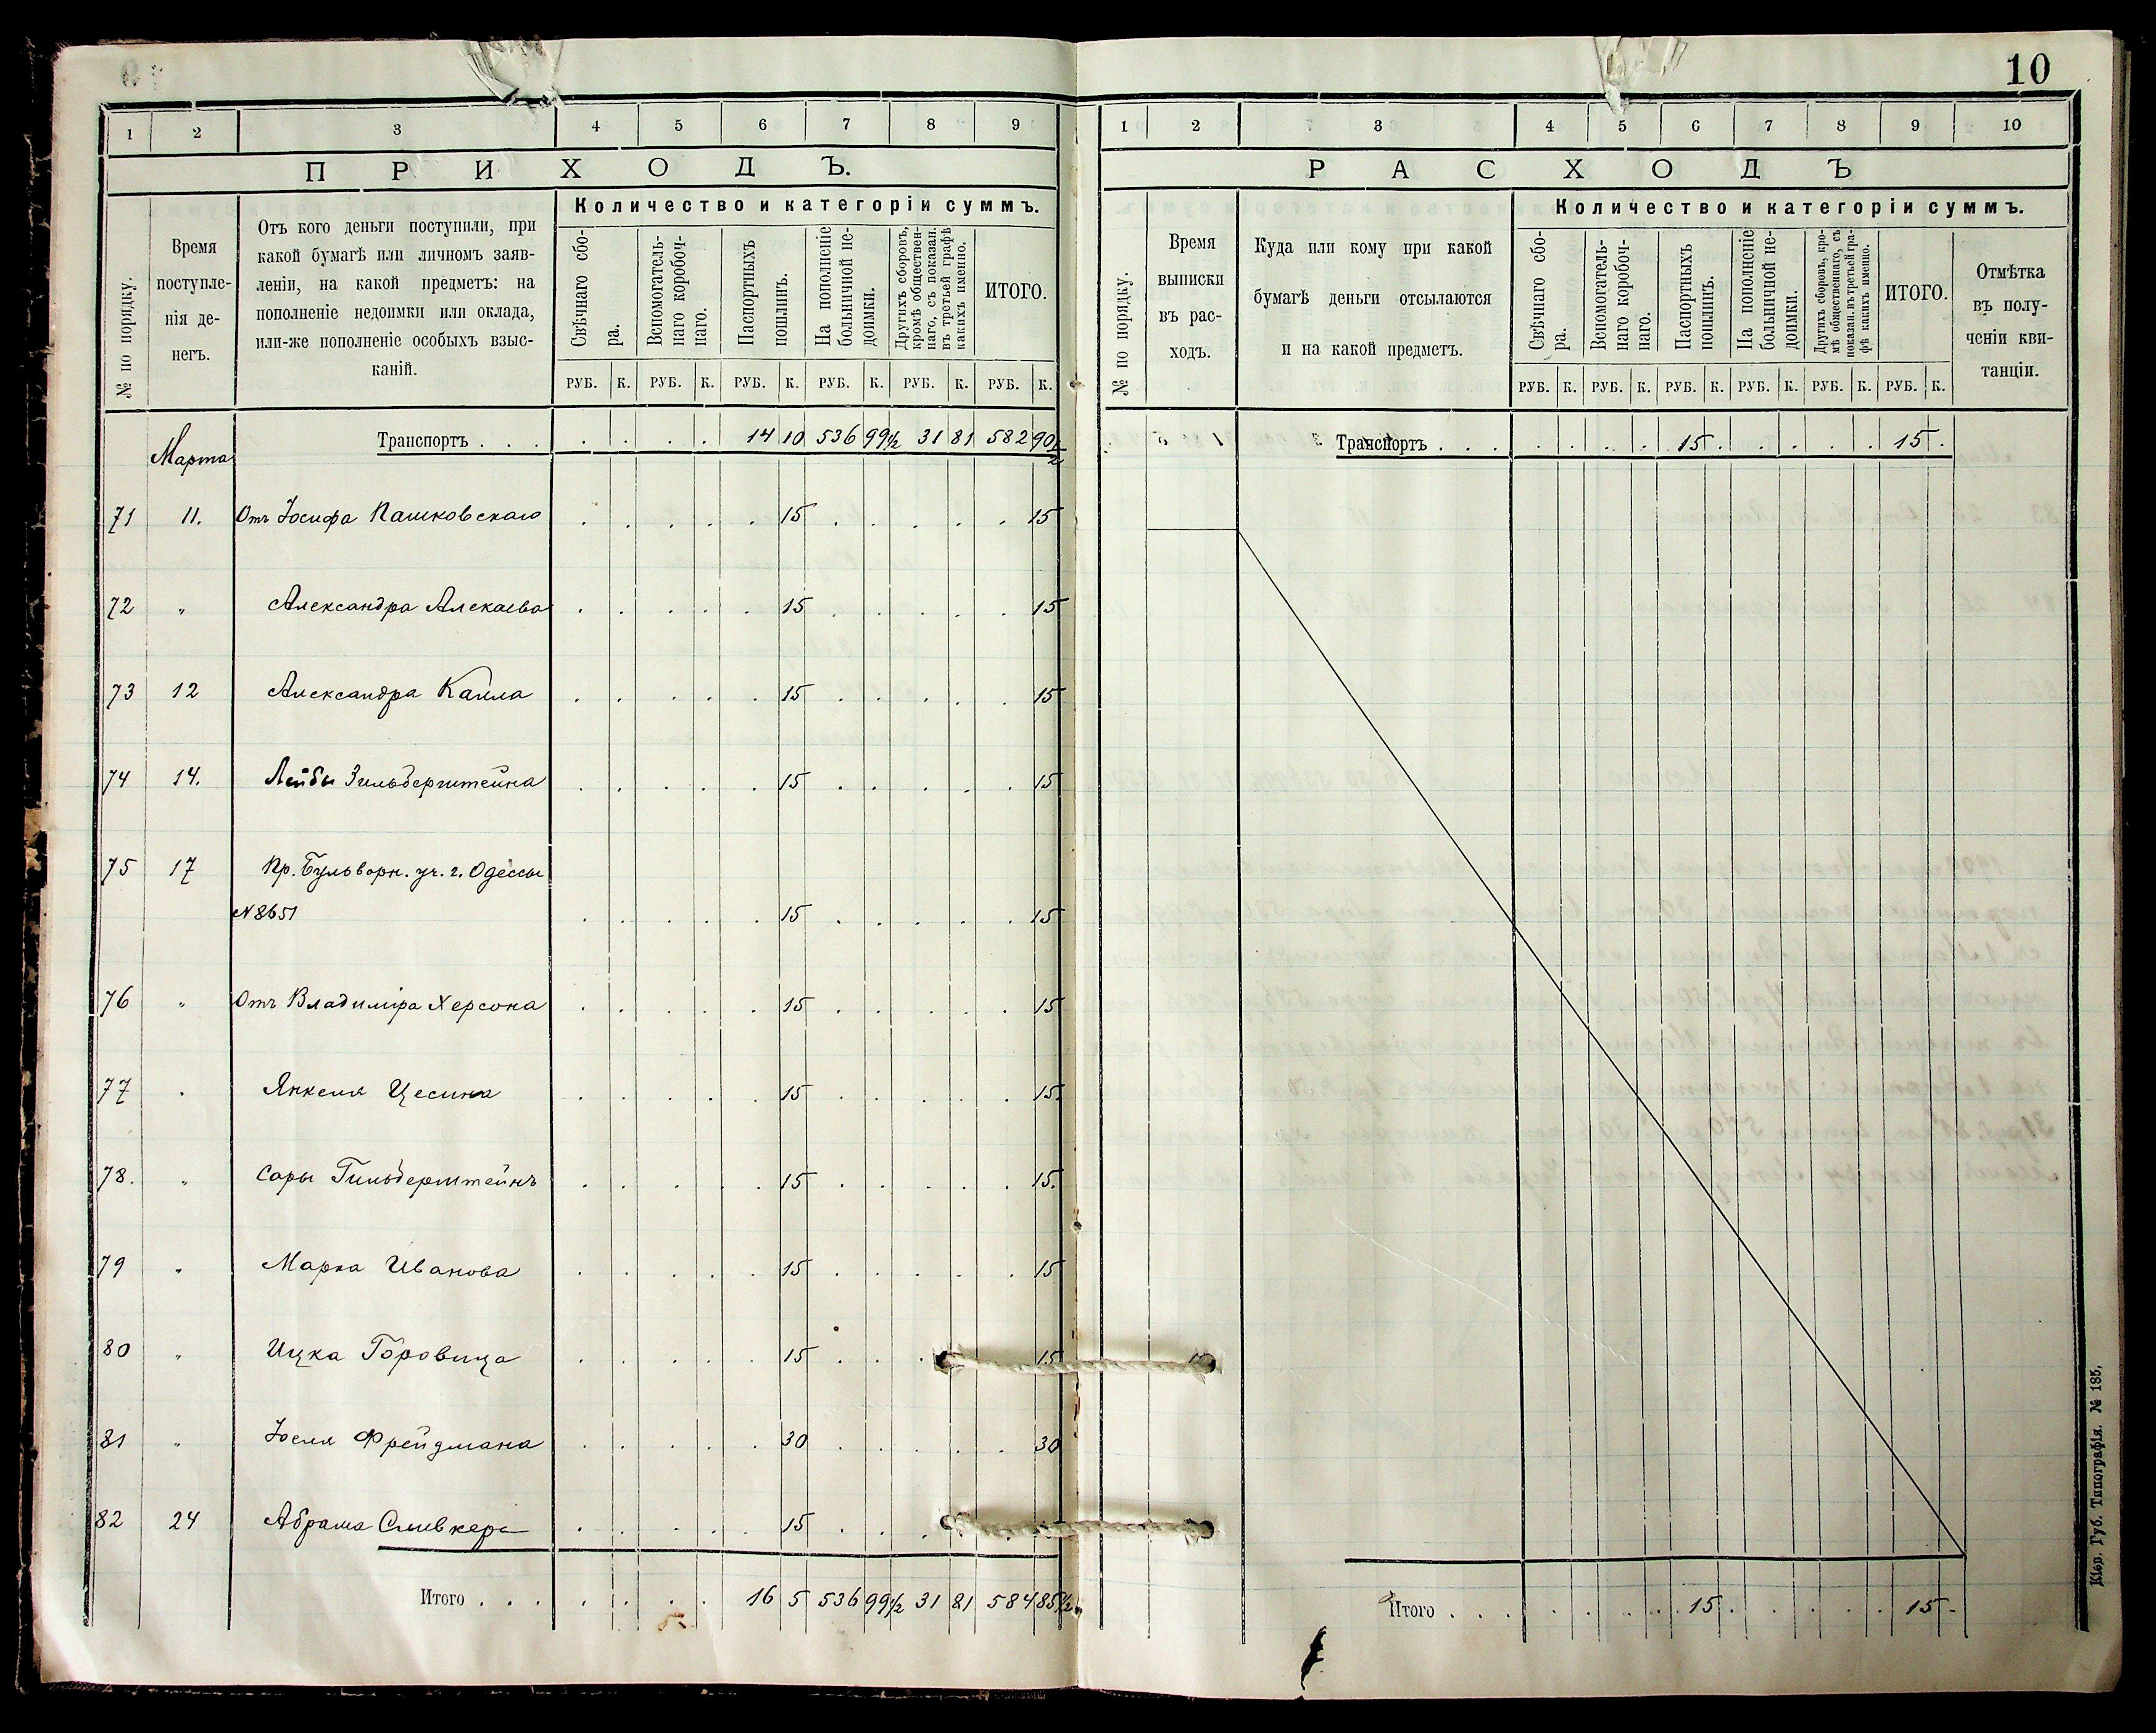 10
1 2 3 4 5 6 7 8 9
ПРИХОДЪ.
№ по порядку.
Время
поступле-
нія де-
негъ.
Отъ кого деньги поступили, при
какой бумагѣ или личномъ заяв-
леніи, на какой предметъ: на
пополненіе недоимки или оклада,
или-же пополненіе особыхъ взыс-
каній.
Количество и категоріи суммъ.
Свѣчнаго сбо-
ра.
Вспомогатель-
наго коробоч-
наго.
Паспортныхъ
пошлинъ.
На пополненіе
больничной не-
доимки.
Другихъ сборовъ,
кромѣ обществен-
наго, съ показан.
въ третьей графѣ
какихъ именно.
ИТОГО.
РУБ. К. РУБ. К. РУБ. К. РУБ. К. РУБ. К. РУБ. К.
Транспортъ . . . . . . . 14 10 536 99½ 31 81 582 90½
Марта
71 11. Отъ Іосифа Пашковскаго . . . . . 15 . . . . . 15
72 " Александра Алекаева . . . . . 15 . . . . . 15
73 12 Александра Капла . . . . . 15 . . . . . 15
74 14. Лейбы Зильберштейна . . . . . 15 . . . . . 15
75 17 Пр. Бульварн. уч. г. Одессы
№8651 . . . . . 15 . . . . . 15
76 " Отъ Владиміра Херсона . . . . . 15 . . . . . 15
77 " Янкеля Цесина . . . . . 15 . . . . . 15.
78. " Сары Гильберштейнъ . . . . . 15 . . . . . 15.
79 " Марка Иванова . . . . . 15 . . . . . 15
80 " Ицка Горовица . . . . . 15 . . . 15
81 " Іоселя Фрейдмана . . . . . 30 . . . . . 30
82 24 Абрама Сливкера . . . . . 15 . . .
Итого . . . . . . . 16 5 536 99½ 31 81 584 85½
1 2 3 4 5 6 7 8 9 10
РАСХОДЪ
№ по порядку.
Время
выписки
въ рас-
ходъ.
Куда или кому при какой
бумагѣ деньги отсылаются
и на какой предметъ.
Количество и категоріи суммъ.
Свѣчнаго сбо-
ра.
Вспомогатель-
наго коробоч-
наго.
Паспортныхъ
пошлинъ.
На пополненіе
больничной не-
доимки.
Другихъ сборовъ, кро-
мѣ общественнаго, съ
показан. въ третьей гра-
фѣ какихъ именно.
ИТОГО.
Отмѣтка
въ полу-
ченіи кви-
танціи.
РУБ. К. РУБ. К. РУБ. К. РУБ. К. РУБ. К. РУБ. К.
Транспортъ . . . . . . . 15 . . . . . 15 .
Итого . . . . . . . 15 . . . . . 15 -
Кіев. Губ. Типографія. № 185.